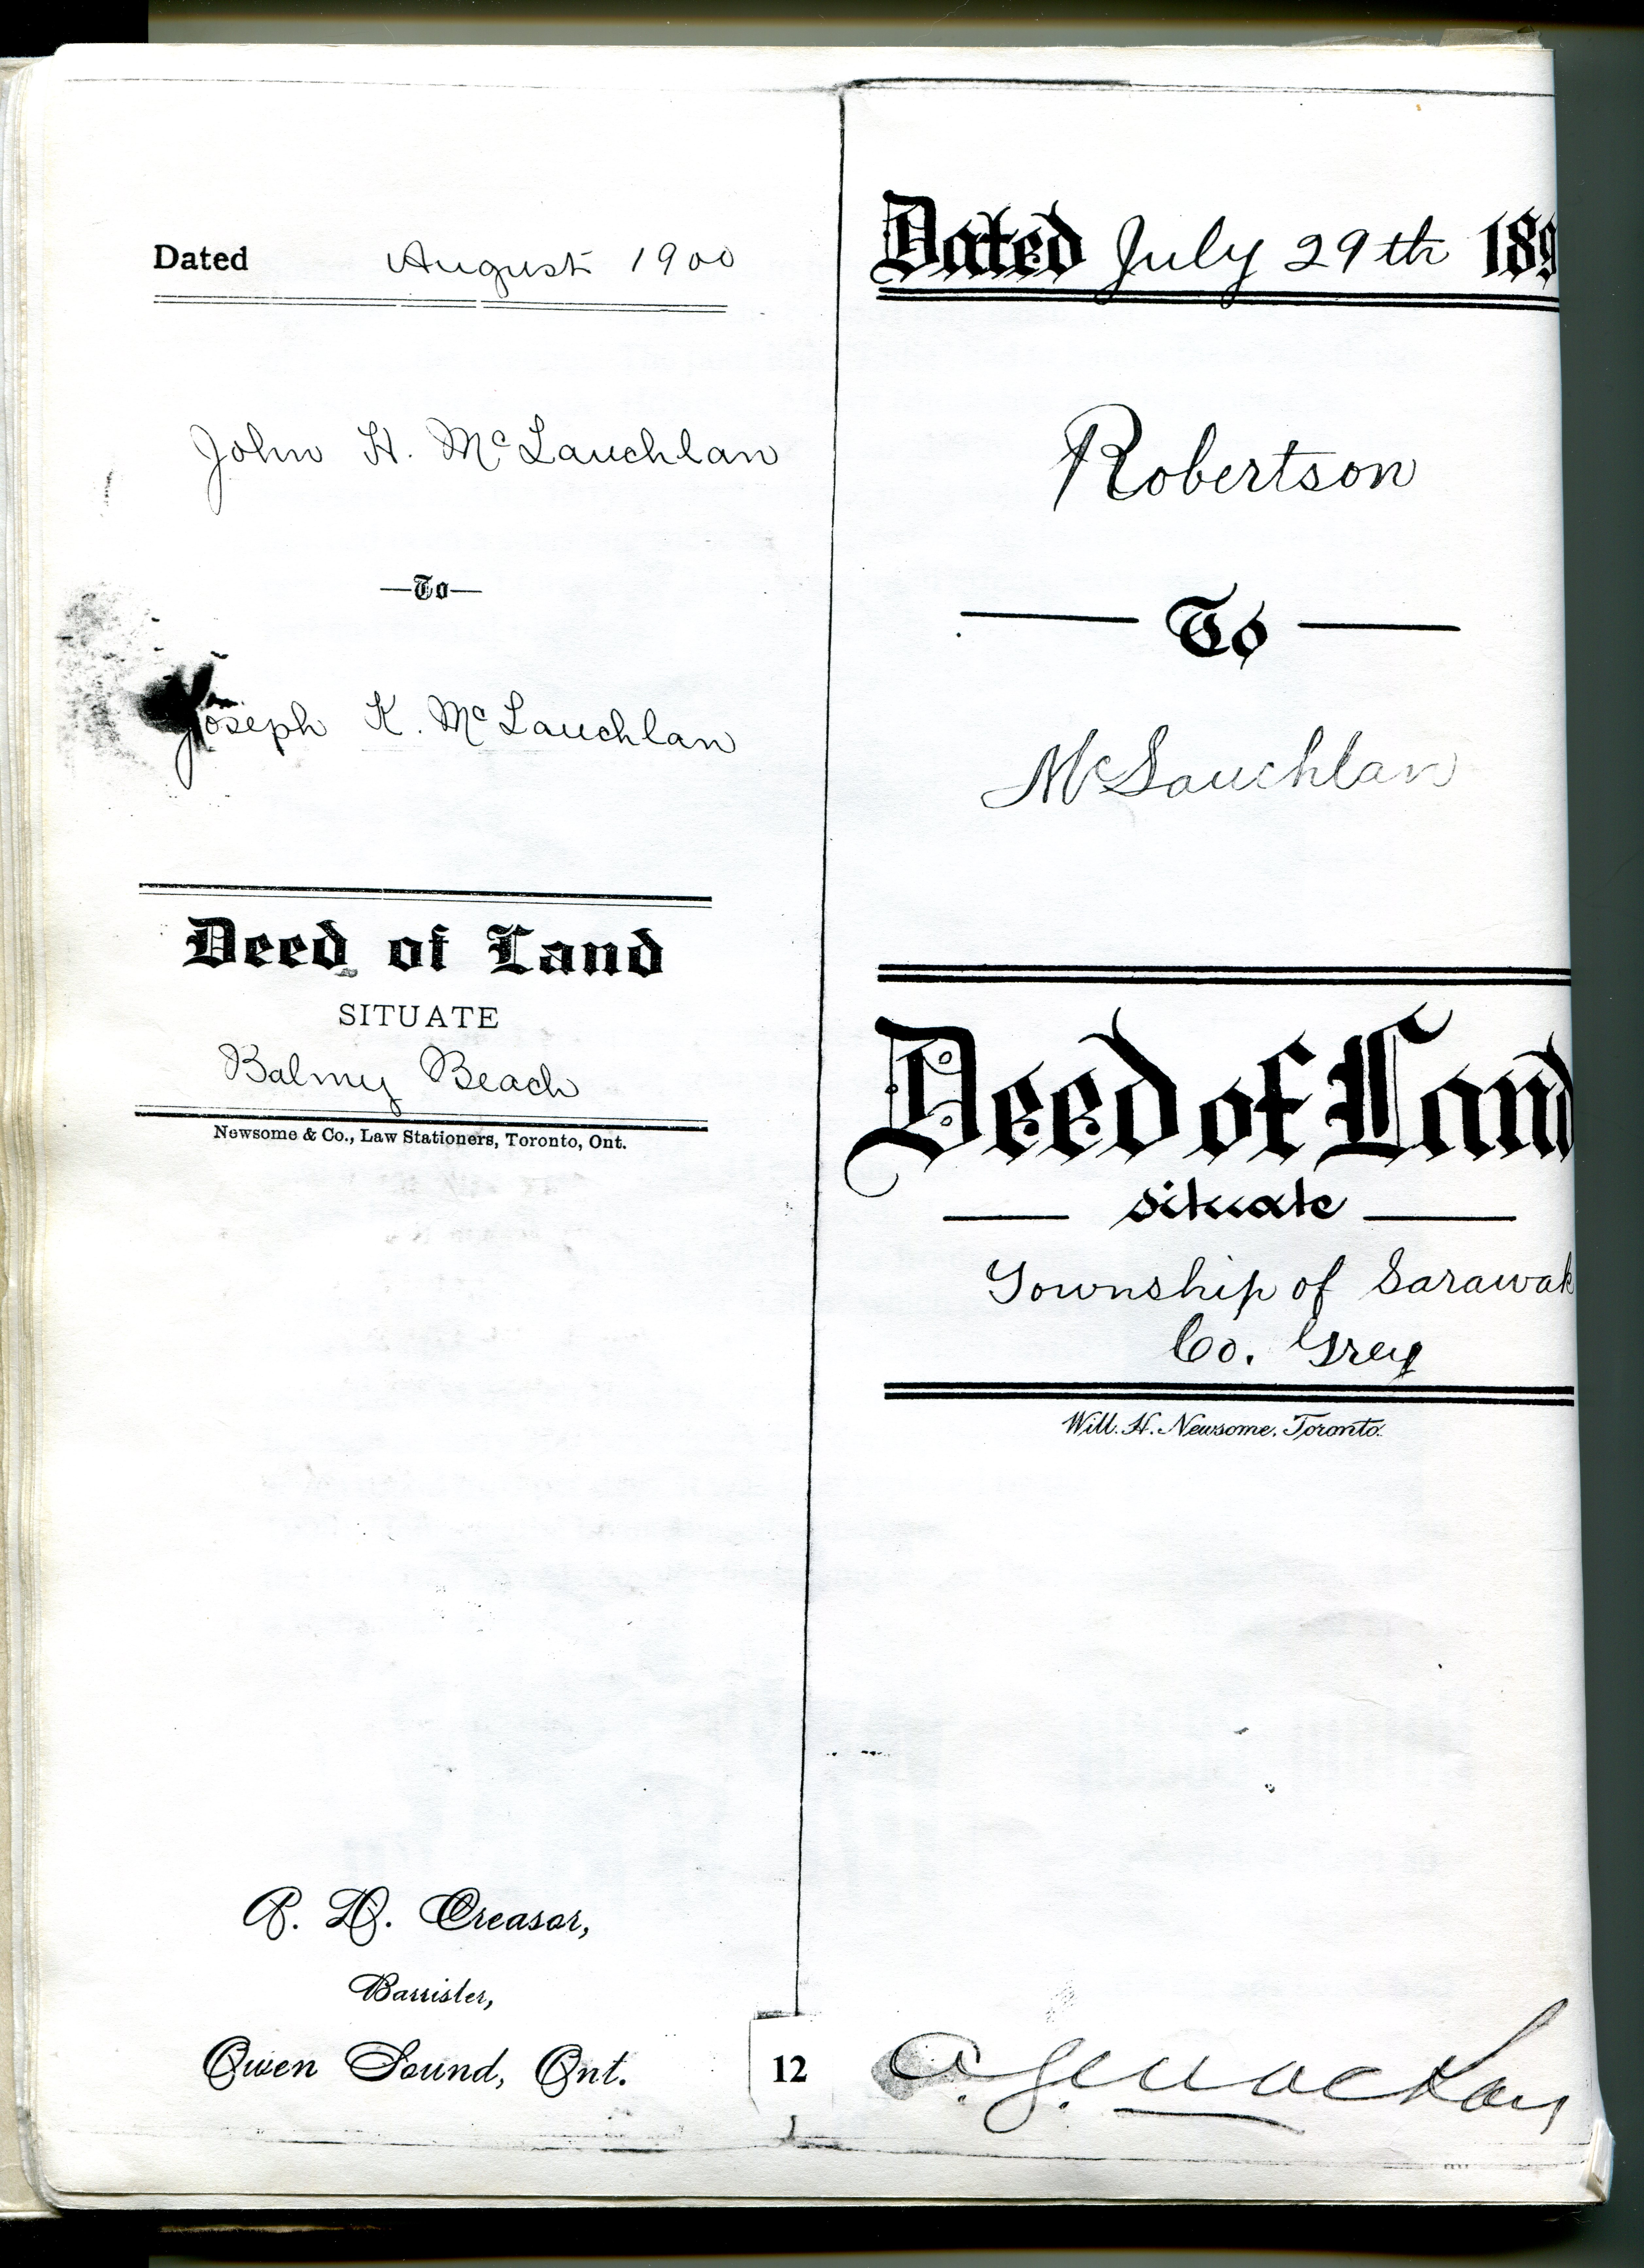 Dated August 1900
John H. McLauchlan
—To—
Joseph K. McLauchlan
Deed of Land
SITUATE
Balmy Beach
Newsome & Co., Law Stationers, Toronto, Ont.
Barrister,
Owen Sound, Ont.
12
Dated July 29th 189
Robertson
To
McLauchlan
Deed of Land
situate
Township of Sarawak
Co. Grey
Will. H. Newsome, Toronto.
A. G. MacKay